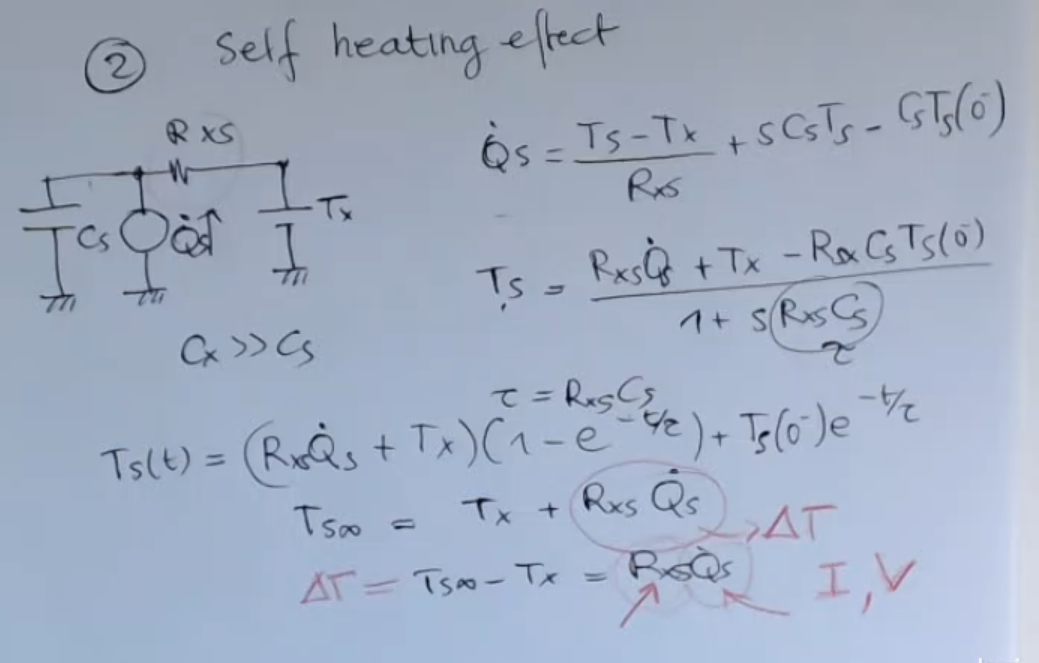 ② Self heating effect
R xs
Q̇s = (Ts - Tx)/Rxs + sCsTs - CsTs(0⁻)
Cs Q̇s↑ Tx
Ts = (RxsQ̇s + Tx - RxsCsTs(0⁻))/(1 + s(RxsCs))
τ
Cx >> Cs
τ = RxsCs
Ts(t) = (RxsQ̇s + Tx)(1 - e^(-t/τ)) + Ts(0⁻)e^(-t/τ)
Ts∞ = Tx + Rxs Q̇s → ΔT
ΔT = Ts∞ - Tx = RxsQ̇s I, V